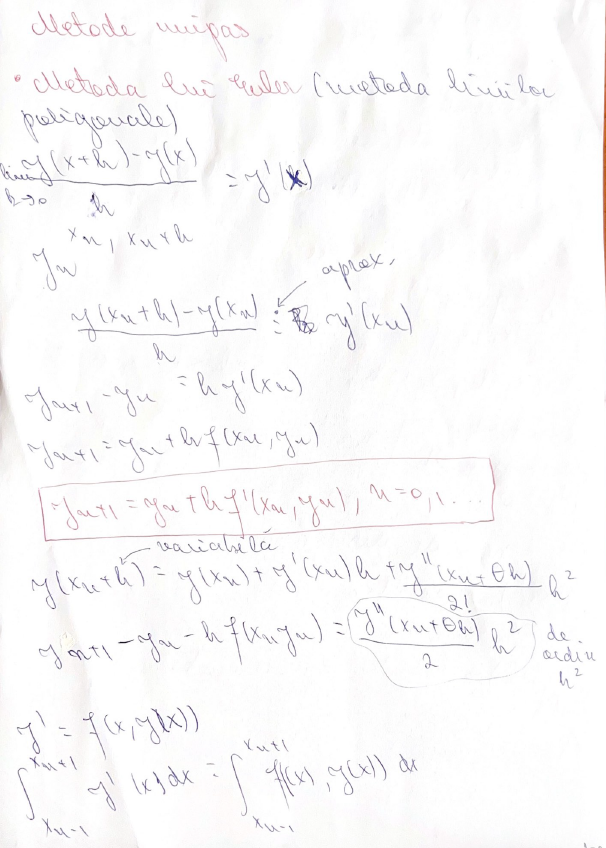 Metode unipas
• Metoda lui Euler (metoda liniilor
poligonale)
lim h→0 (y(x+h) - y(x)) / h = y'(x)
x_n, x_n+h
y_n
aprox.
(y(x_n+h) - y(x_n)) / h ≐ y'(x_n)
y_{n+1} - y_n = h y'(x_n)
y_{n+1} = y_n + h f(x_n, y_n)
y_{n+1} = y_n + h f'(x_n, y_n), n = 0, 1 ...
variabilă
y(x_n+h) = y(x_n) + y'(x_n) h + y''(x_n+θh) / 2! h²
y_{n+1} - y_n - h f(x_n y_n) = y''(x_n+θh) / 2 h² de ordin h²
y' = f(x, y(x))
∫_{x_{n-1}}^{x_{n+1}} y'(x) dx = ∫_{x_{n-1}}^{x_{n+1}} f((x), y(x)) dx